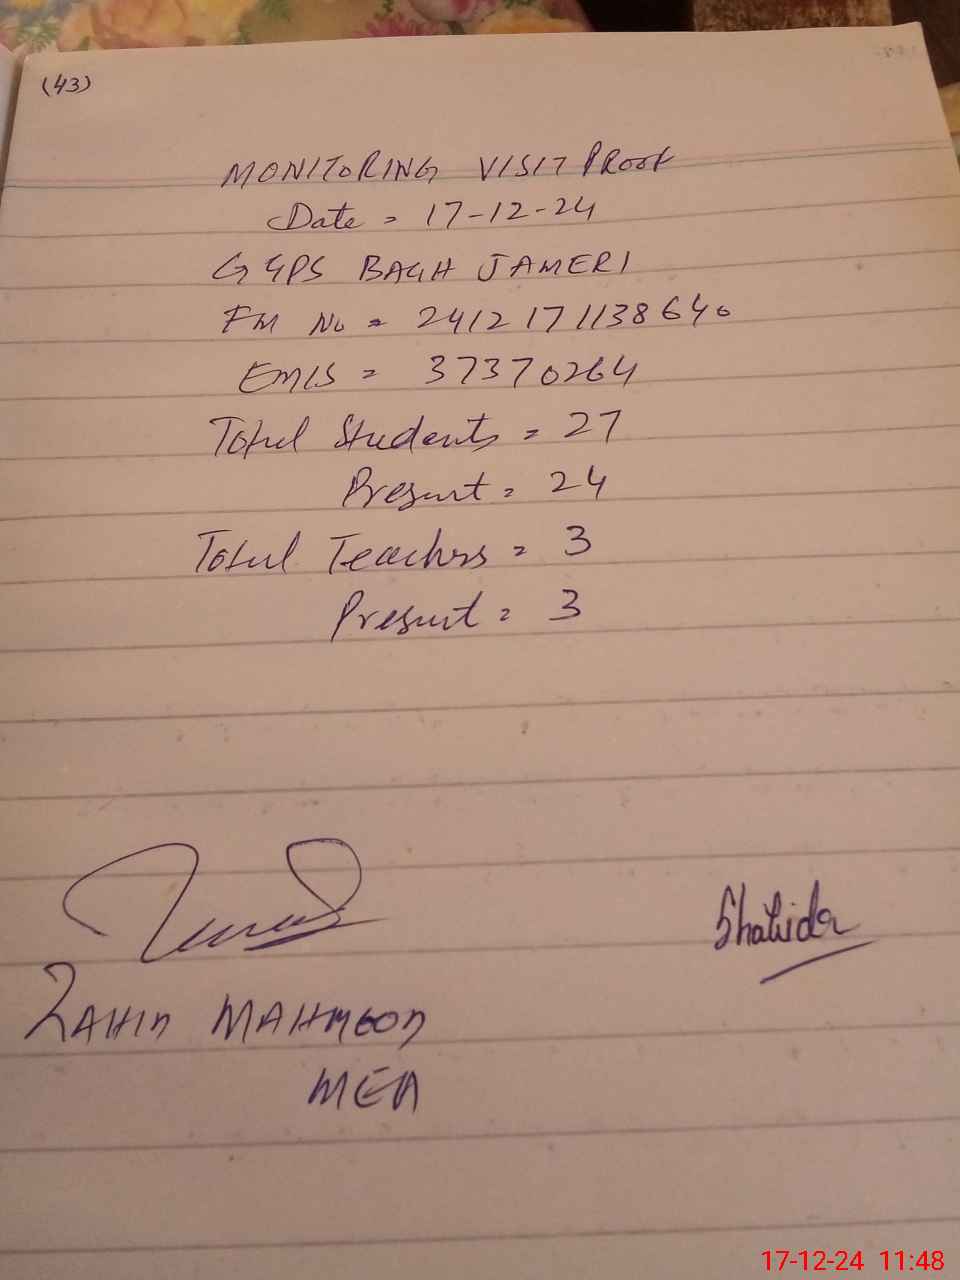 (43)
MONITORING VISIT PROOF
Date = 17-12-24
GGPS BAGH JAMERI
FM No = 2412171138640
EMIS = 37370264
Total Students = 27
Present = 24
Total Teachers = 3
Present = 3
Shahida
ZAHID MAHMOOD
MEA
17-12-24 11:48